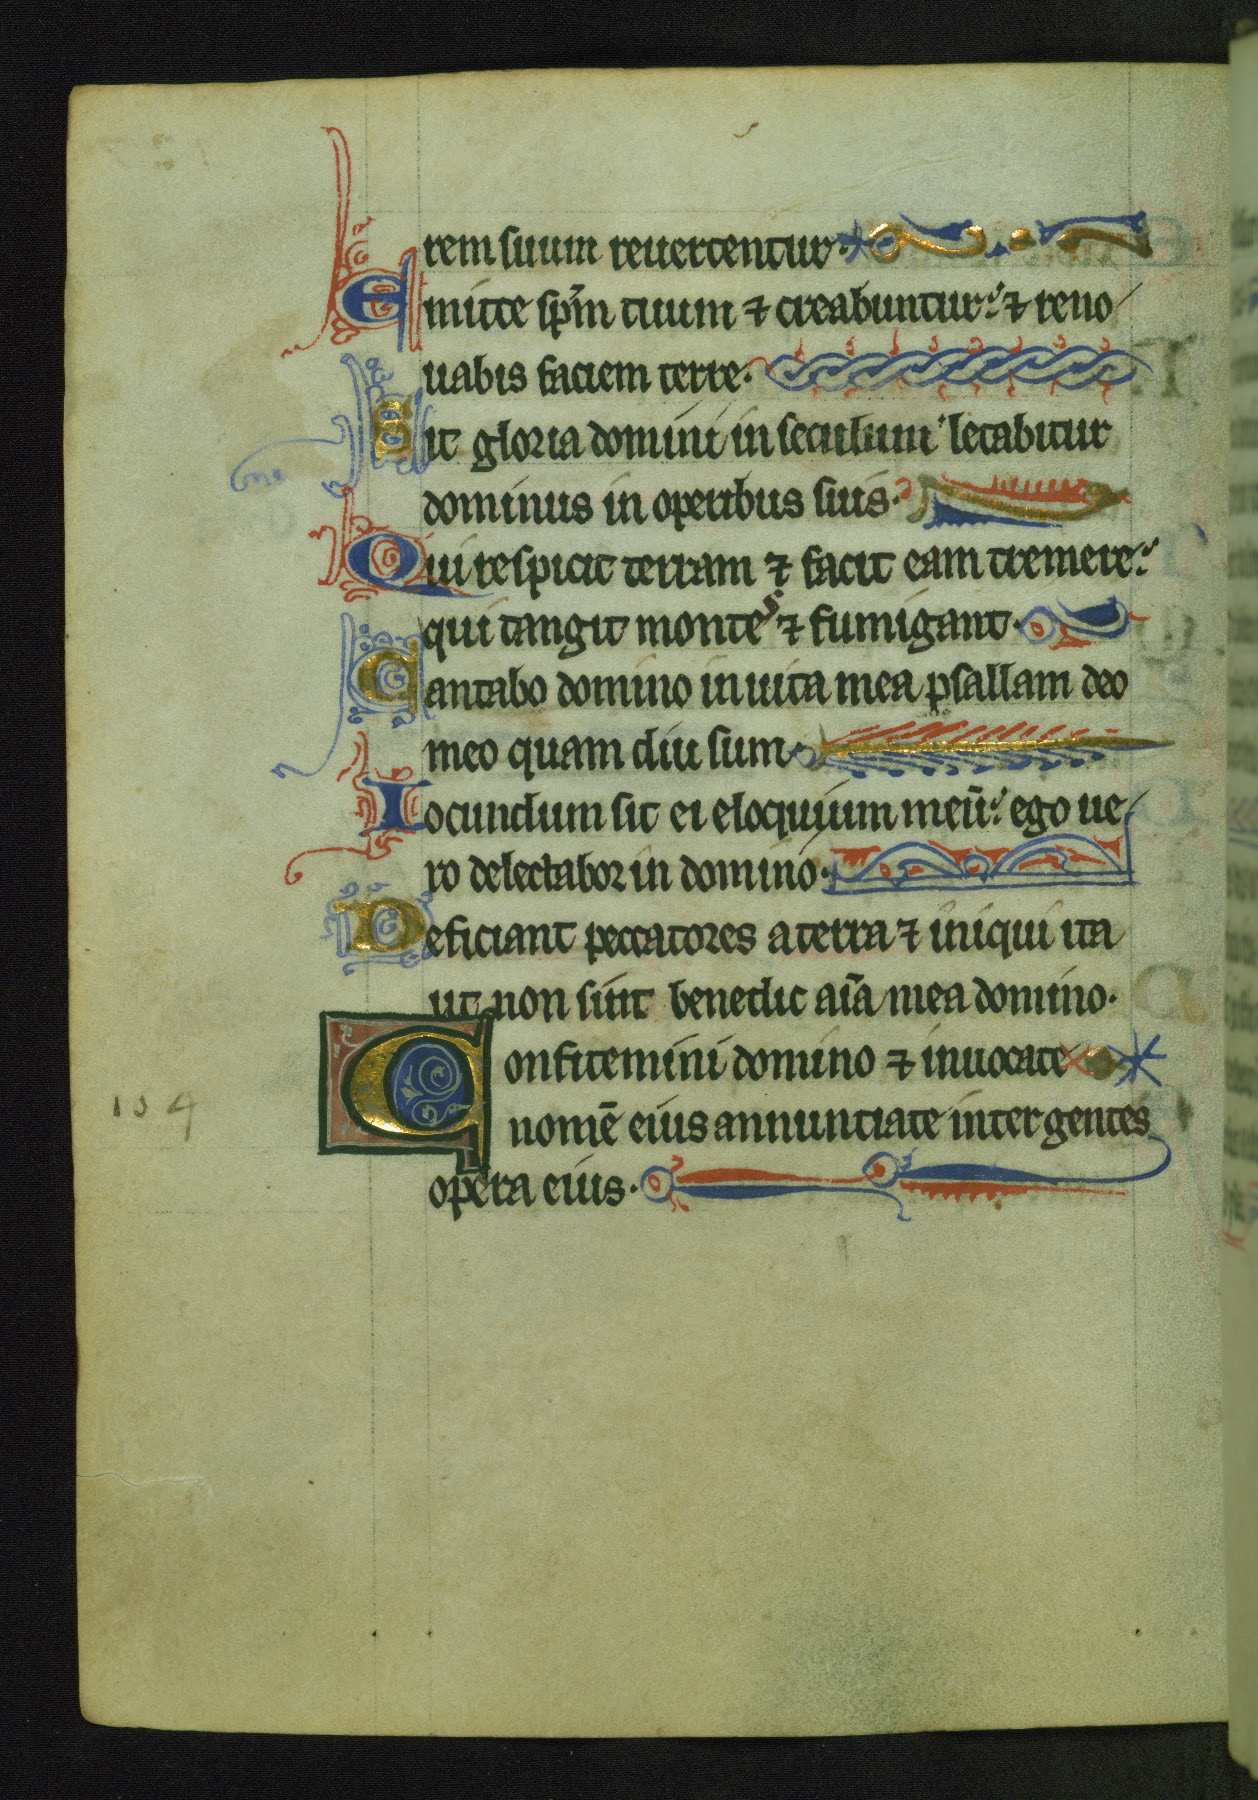 rem suum reuertentur·
Emitte sp̄m tuum ⁊ creabuntur: ⁊ reno
uabis faciem terre·
Sit gloria domini in seculum letabitur
dominus in operibus suis·
Qui respicit terram ⁊ facit eam tremere:
qui tangit montes ⁊ fumigant·
Cantabo domino in uita mea psallam deo
meo quam diu sum·
Iocundum sit ei eloquium meū: ego ue
ro delectabor in domino·
Deficiant peccatores a terra ⁊ iniqui ita
ut non sint benedic aīa mea domino·
Confitemini domino ⁊ inuocate
nomē eius annunciate inter gentes
opera eius·
104